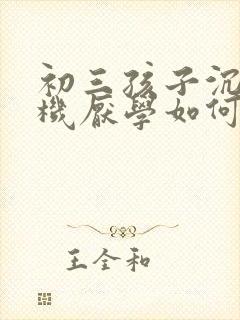 初三孩子沉
機厭學如何
王全和